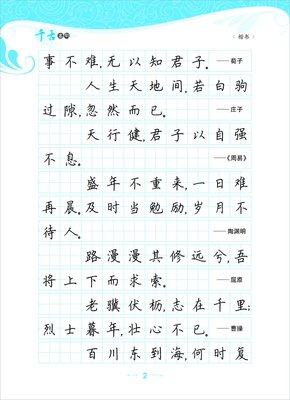 千古名句
(楷书)
事不难,无以知君子。——荀子
人生天地间,若白驹
过隙,忽然而已。——庄子
天行健,君子以自强
不息。——《周易》
盛年不重来,一日难
再晨。及时当勉励,岁月不
待人。——陶渊明
路漫漫其修远兮,吾
将上下而求索。——屈原
老骥伏枥,志在千里;
烈士暮年,壮心不已。——曹操
百川东到海,何时复
2